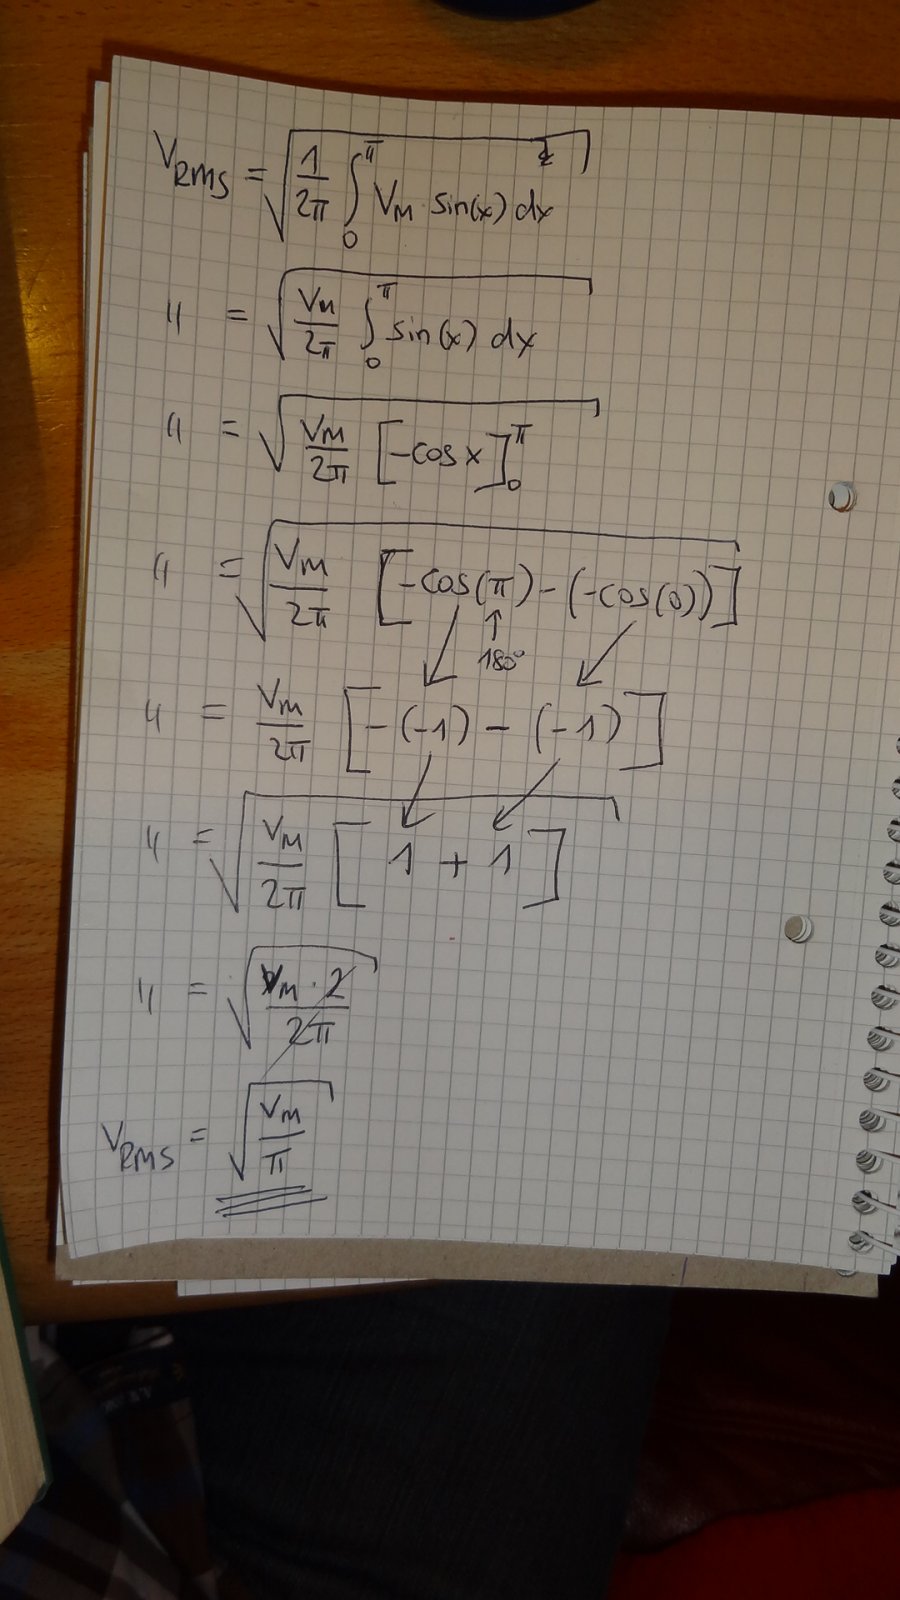 V_RMS = √(1/2π ∫₀^π V_M sin(x) dx ²)
" = √(V_M/2π ∫₀^π sin(x) dx)
" = √(V_M/2π [-cos x]₀^π)
" = √(V_M/2π [-cos(π) - (-cos(0))])
↑
180°
" = V_M/2π [-(-1) - (-1)]
" = √(V_M/2π [1 + 1])
" = √(V_M · 2/2π)
V_RMS = √(V_M/π)